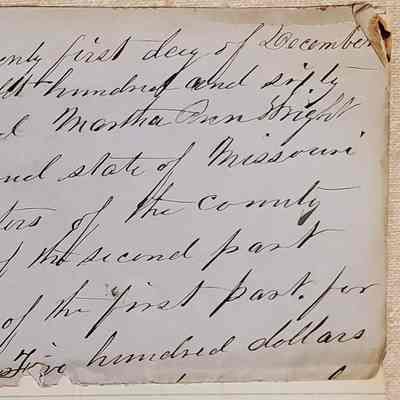 enty first day of December
hundred and sixty
Martha Ann Wright
and state of Missouri
ters of the county
of the second part
of the first part. for
Five hundred dollars